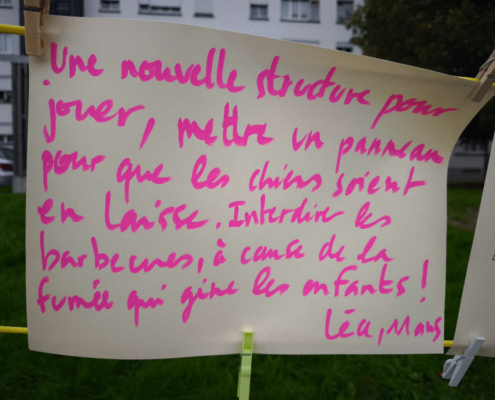 Une nouvelle structure pour
jouer, mettre un panneau
pour que les chiens soient
en laisse. Interdire les
barbecues, à cause de la
fumée qui gine les enfants !
Léa, 11 ans